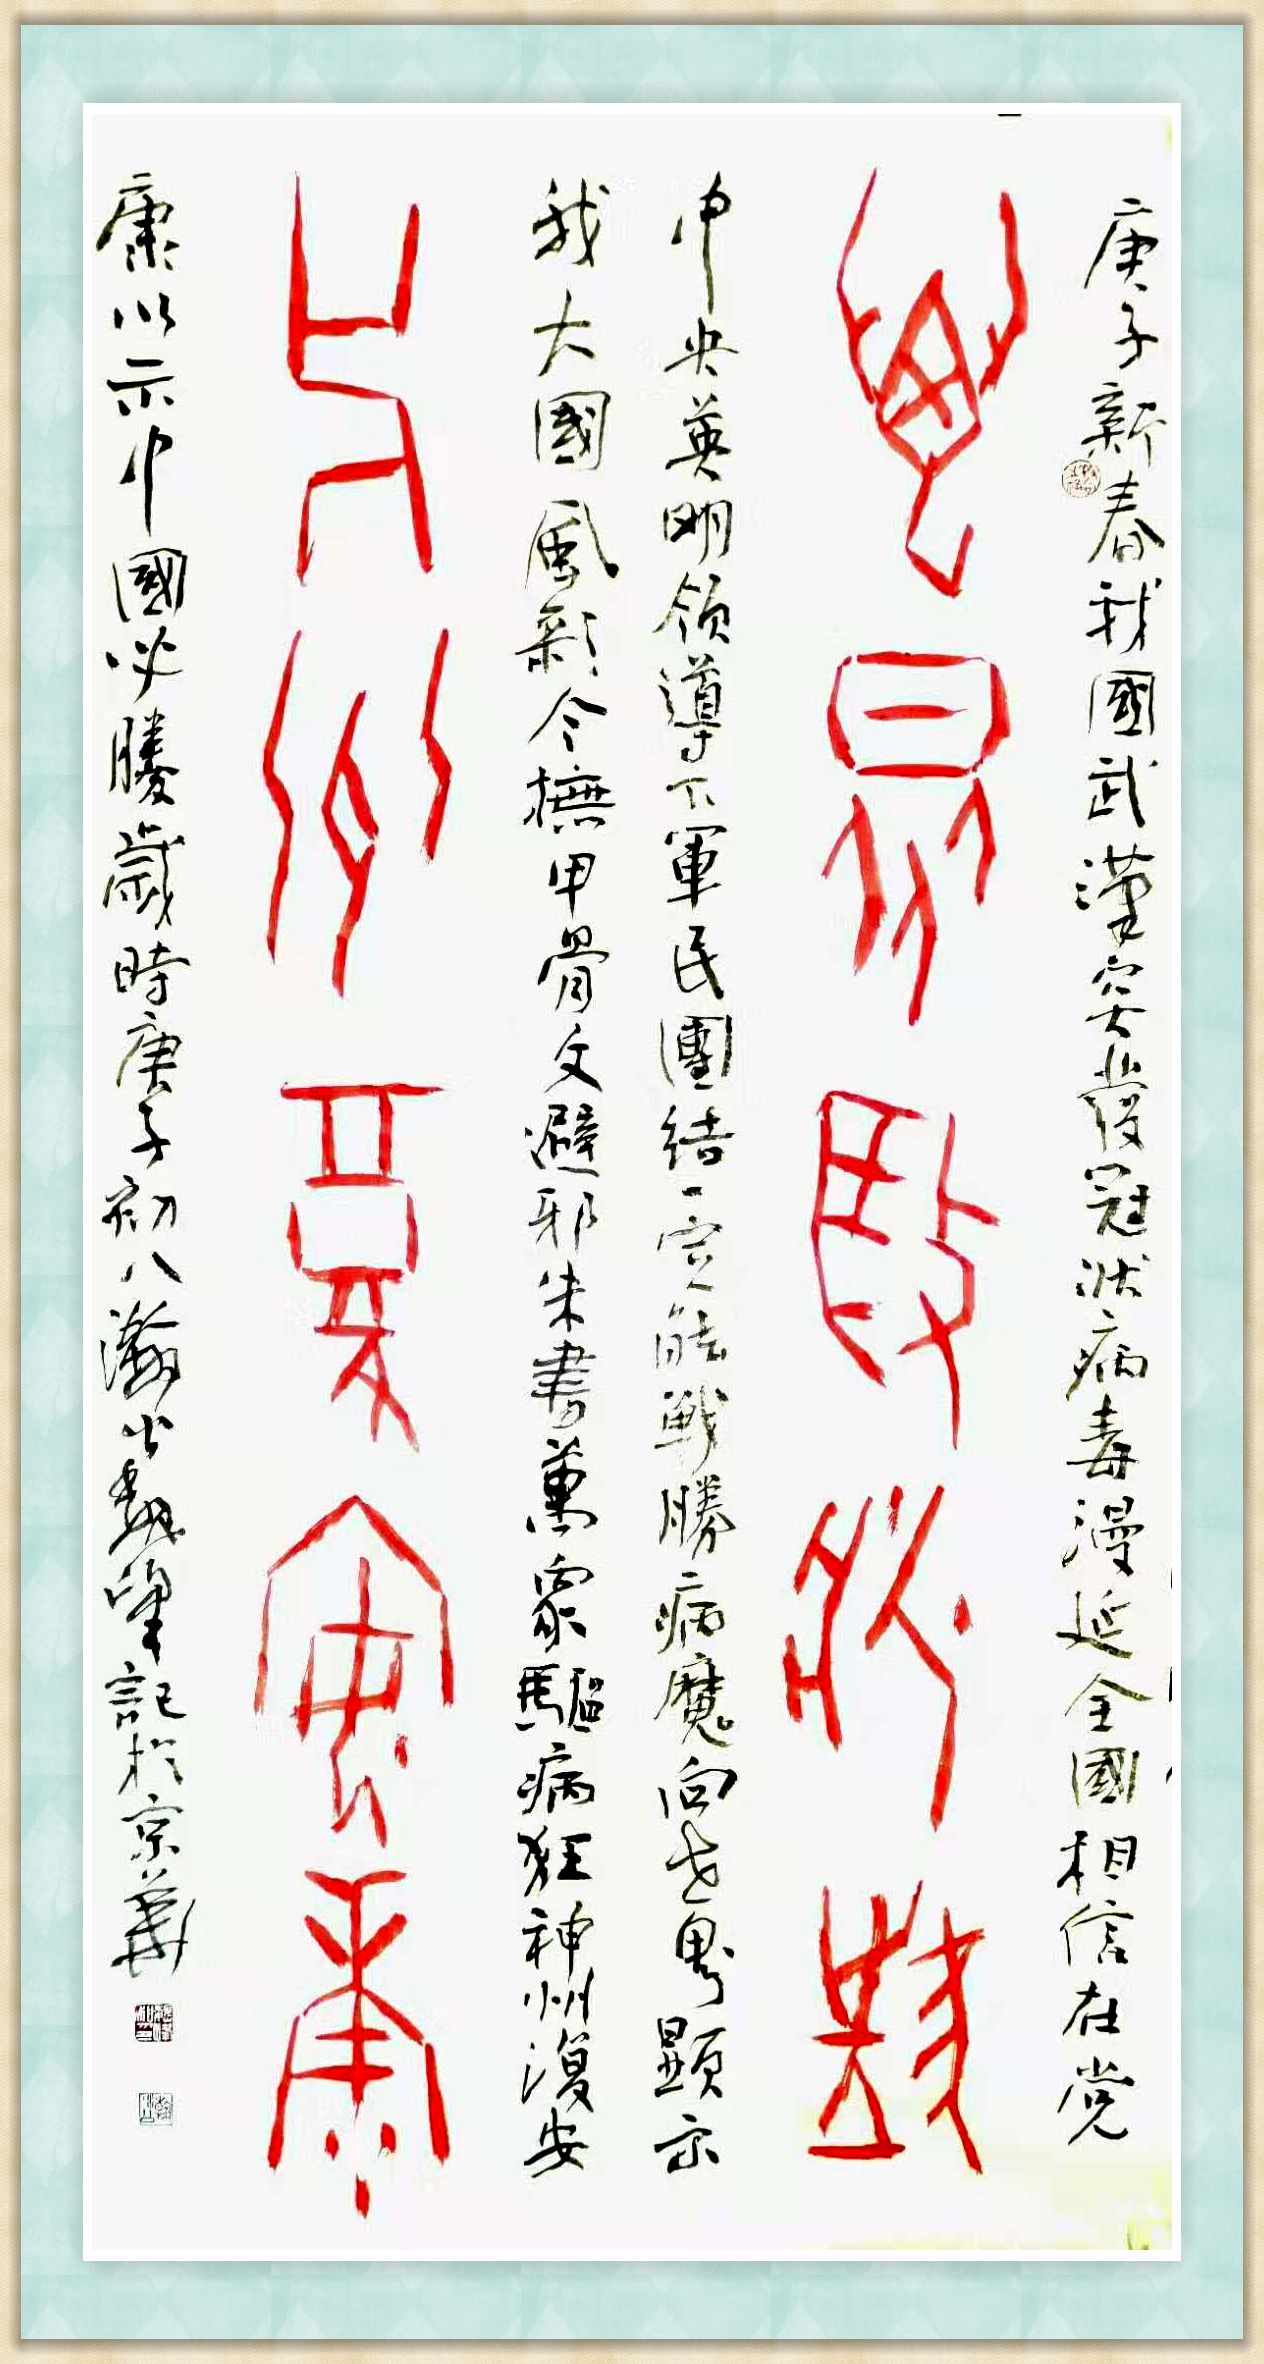 庚子新春我國武漢突發冠狀病毒漫延全國相信在党
萬眾驅病狂
中央英明領導下軍民團結一定能戰勝病魔向世界顯示
我大國風彩今撫甲骨文避邪朱書萬眾驅病狂神州復安
神州復安康
康以示中國必勝歲時庚子初八瀚山魏峰記於京華